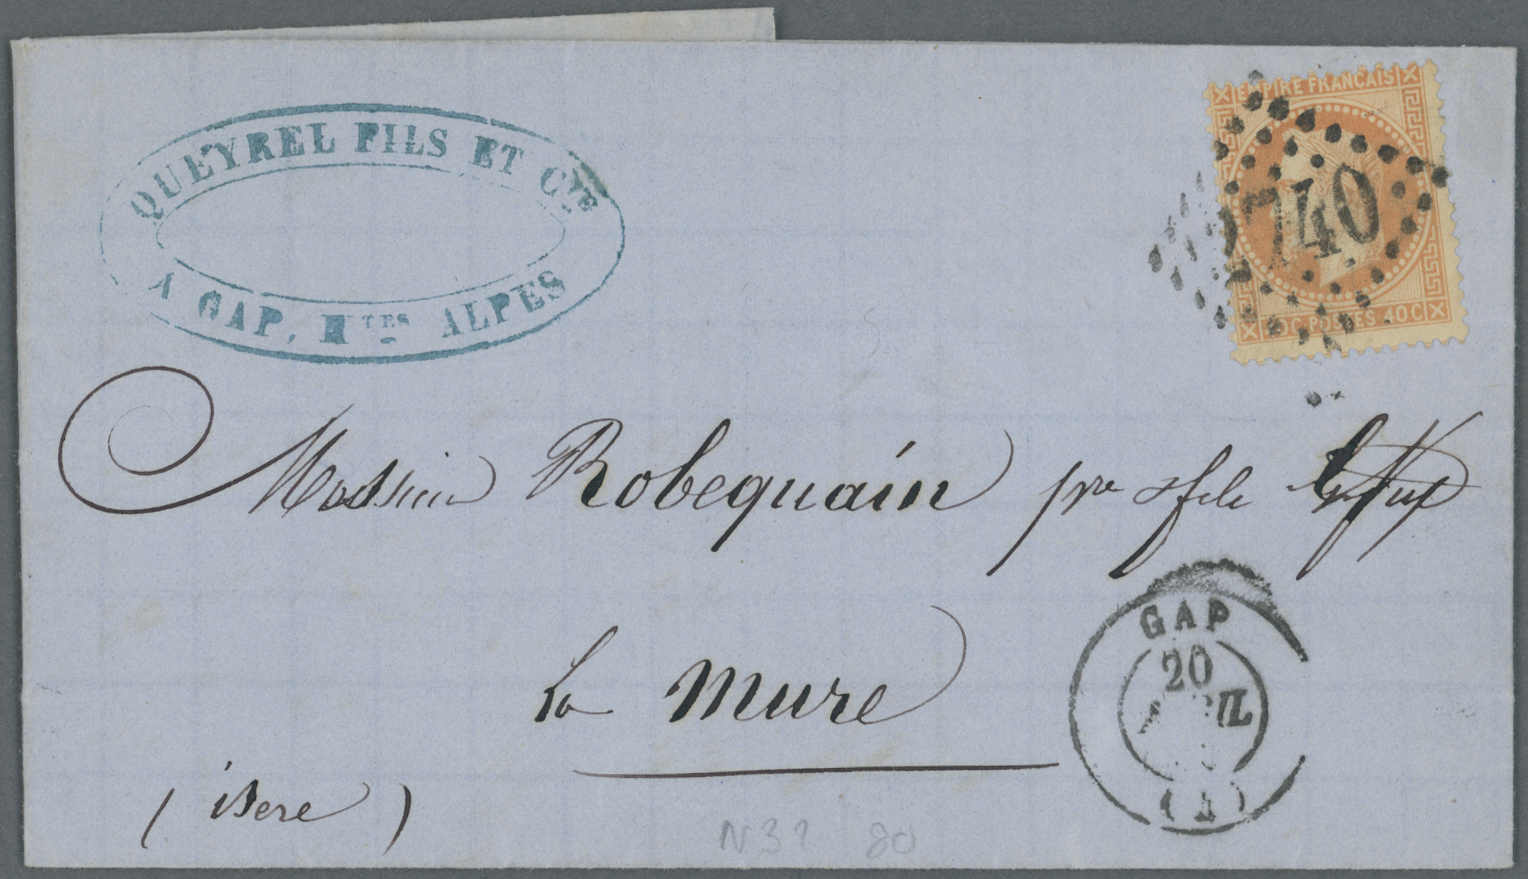 QUEYREL FILS ET Cie
A GAP, Htes ALPES
EMPIRE FRANCAIS
2740
40 C POSTES 40 C
Robequain
La Mure
(isere)
GAP
20
AVRIL
(4)
N32 80